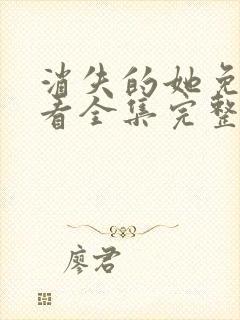 消失的她免
看全集完整
廖君